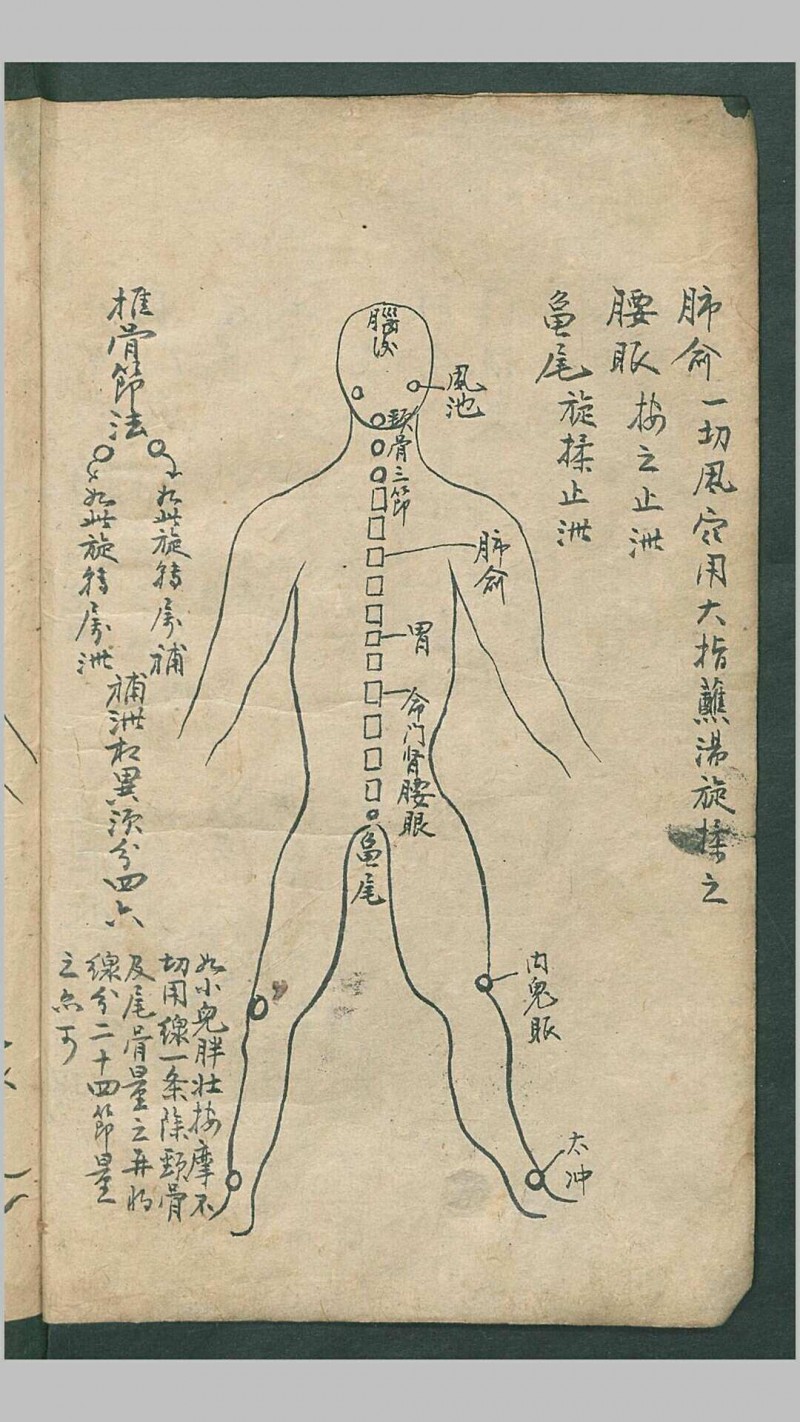 肺俞一切風症用大指蘸湯旋揉之
腰眼按之止泄
龟尾旋揉止泄
腦後
風池
頸骨三節
肺俞
胃
命门肾腰眼
龟尾
内鬼眼
太冲
推骨節法
如此旋轉属補
如此旋轉属泄
補泄相異须分四六
如小兒胖壮按摩不
切用線一条除頸骨
及尾骨量之再将
線分二十四節量
之亦可